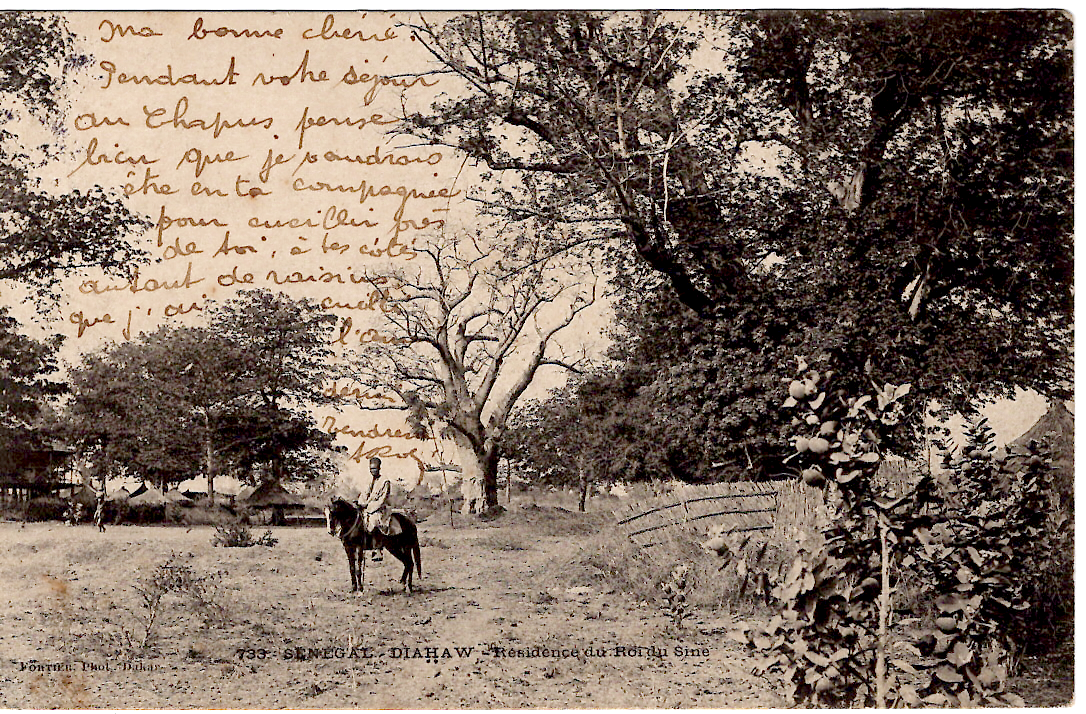 Ma bonne chérie.
Pendant votre séjour
au Chapus, pense
bien que je voudrais
être en ta compagnie
pour cueillir près
de toi, à tes côtés
autant de raisins
que j'ai cueilli
l'an
dernier
vendredi
733 - SÉNÉGAL - DIAHAW - Résidence du Roi du Sine
FORTIER, Phot., Dakar